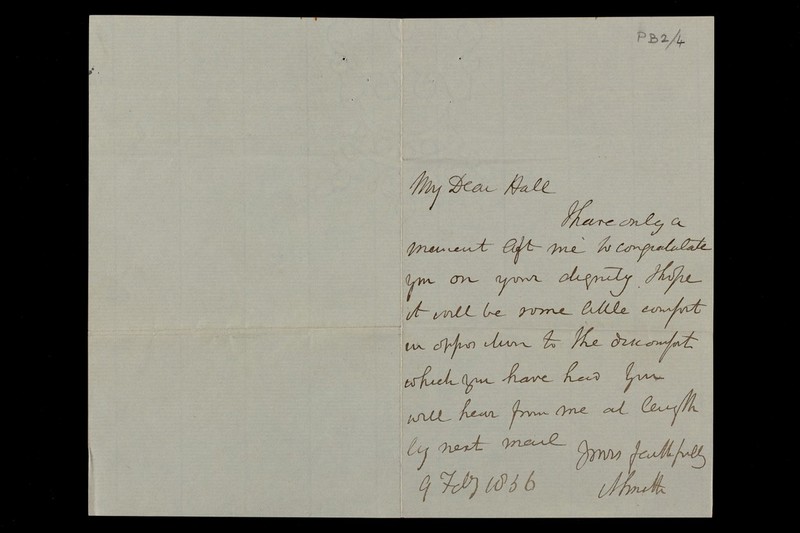 PB2/4
My Dear Hall
I have only a
moment left me to congratulate
you on your dignity. I hope
it will be some little comfort
in opposition to the discomfort
which you have had You
will hear from me at length
by next mail
Yours faithfully
9 Feby 1856
Smith